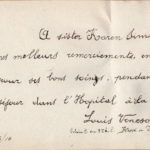 A sister Karen Sim
meilleurs remerciements, en
pour ses bons soins, pendan
séjour dans l'Hopital à la
Louis